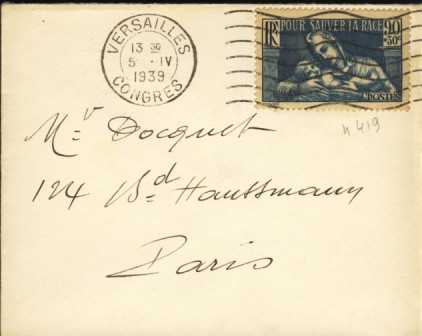 VERSAILLES
13 30
5 - IV
1939
CONGRES
RF POUR SAUVER LA RACE 90
+50c
POSTES
n 419
Mr Docquet
124 Bd Haussmann
Paris